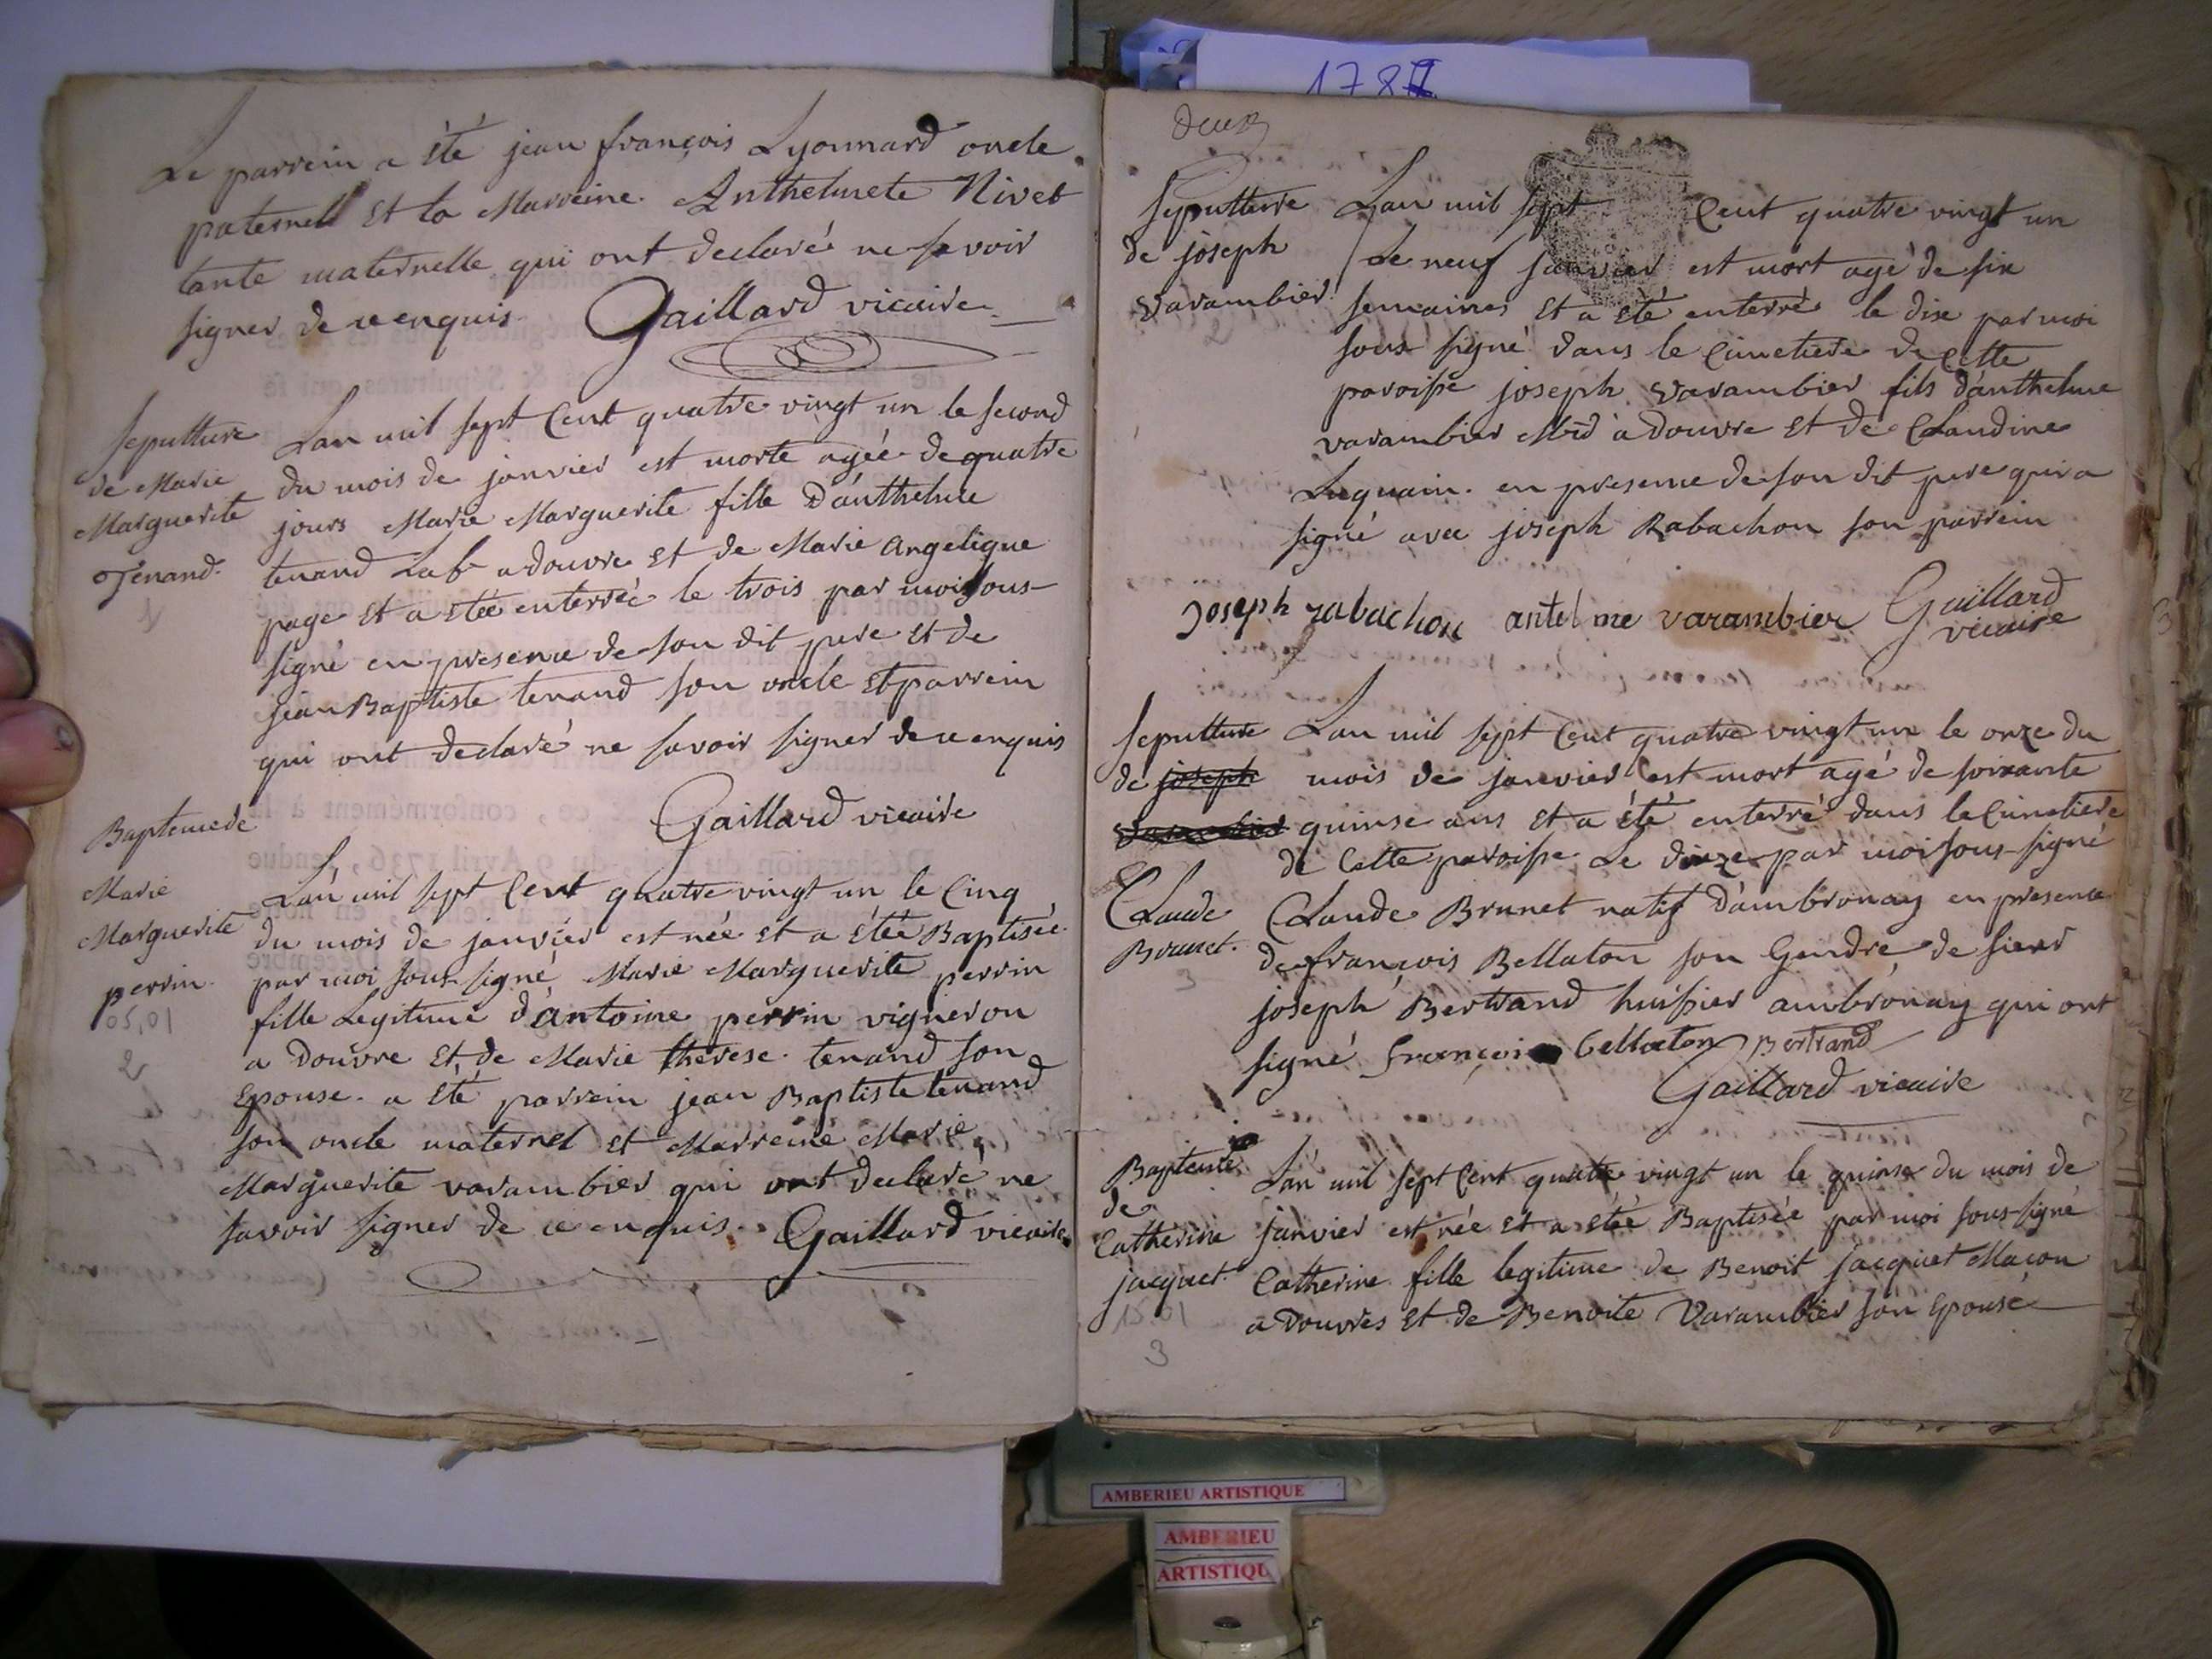 Le parrein a été jean françois Lyonnard oncle
paternell et la Marreine Anthelmete Nivet
tante maternelle qui ont declaré ne savoir
signer de ce enquis Gaillard vicaire
Sepulture
de Marie
Marguerite
Tenand.
1
L'an mil sept Cent quatre vingt un le second
du mois de janvier est morte agée de quatre
jours Marie Marguerite fille D'anthelme
tenand Lab^r a douvre et de Marie angelique
page et a etée enterrée le trois par moi sous-
signé en presence de son dit pere et de
jean Baptiste tenand son oncle et parrein
qui ont declaré ne savoir signer de ce enquis
Gaillard vicaire
Baptemede
Marie
Marguerite
perrin.
05,01
2
L'an mil sept Cent quatre vingt un le Cinq
du mois de janvier est née et a étée Baptisée
par moi sous-signé Marie Marguerite perrin
fille Legitime d'antoine perrin vigneron
a Douvre et de Marie therese tenand son
Epouse. a été parrein jean Baptiste tenand
son oncle maternel et Marreine Marie
Marguerite varambier qui ont declaré ne
savoir signer de ce enquis. Gaillard vicaire
1781
deux
Sepulture
de joseph
varambier.
2
L'an mil sept Cent quatre vingt un
Le neuf janvier est mort agé de six
semaines et a été enterré le dix par moi
sous signé dans le Cimetiere de Cette
paroisse joseph varambier fils d'anthelme
varambier Md à douvre et de Claudine
Luquain. en presence de son dit pere qui a
signé avec joseph Rabachon son parrein
Joseph rabachon antelme varambier Gaillard
vicaire
Sepulture
de joseph
varambier
Claude
Brunet.
3
L'an mil sept Cent quatre vingt un le onze du
mois de janvier est mort agé de soixante
quinse ans et a été enterré dans le Cimetiere
de Cette paroisse Le douze par moi sous-signé
Claude Brunet natif d'ambronay en presence
de françois Bellaton son Gendre de sieur
joseph Bertrand huissier ambronay qui ont
signé françois bellaton Bertrand
Gaillard vicaire
Bapteme
de
Catherine
jacquet.
15,01
3
L'an mil sept Cent quatre vingt un le quinse du mois de
janvier est née et a étée Baptisée par moi sous-signé
Catherine fille legitime de Benoit jacquet Maçon
a Douvres et de Benoite Varambier son Epouse
AMBERIEU ARTISTIQUE
AMBERIEU
ARTISTIQU